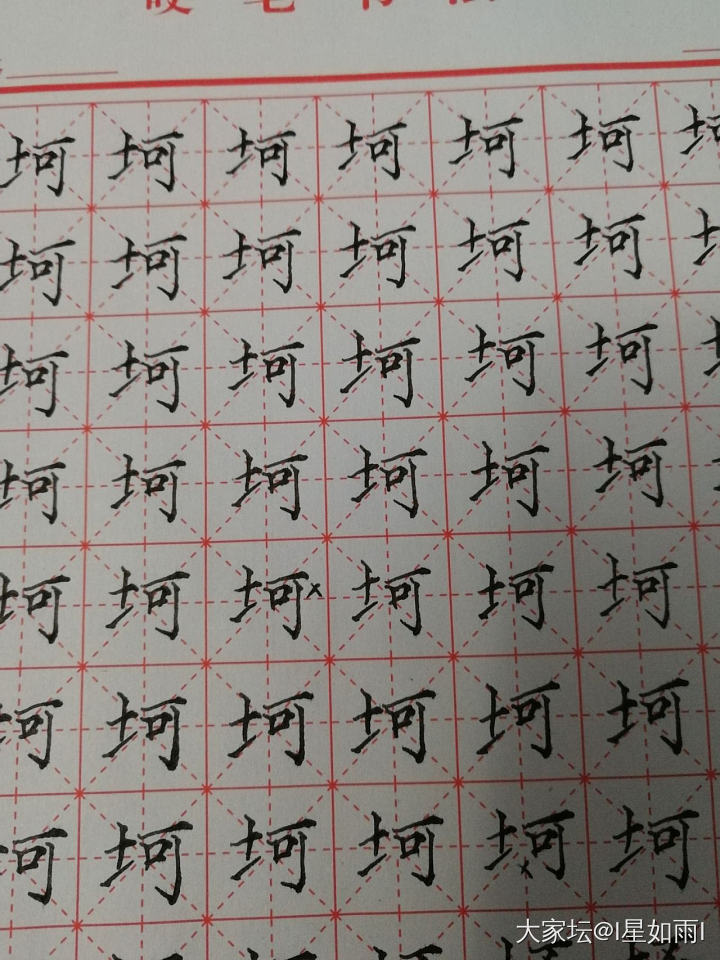 硬笔书法
坷坷坷坷坷坷
坷坷坷坷坷坷
坷坷坷坷坷坷
坷坷坷坷坷坷
坷坷坷×坷坷坷
坷坷坷坷坷坷
坷坷坷坷坷×坷
大家坛@I星如雨I